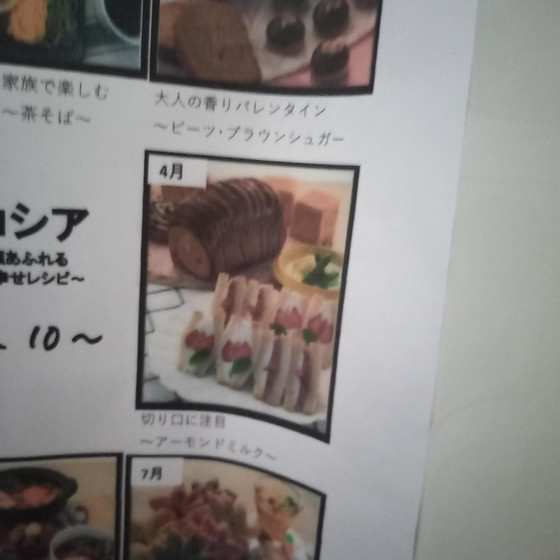 家族で楽しむ
～茶そば～
大人の香りバレンタイン
～ビーツ・ブラウンシュガー
4月
シア
あふれる
せレシピ～
10～
切り口に注目
～アーモンドミルク～
7月